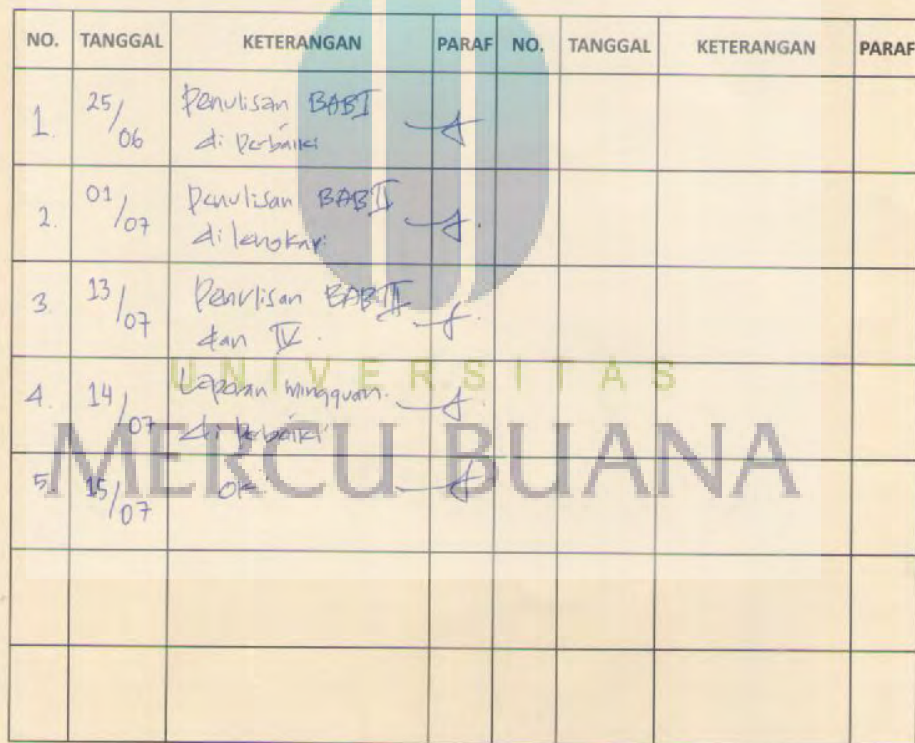 NO. TANGGAL KETERANGAN PARAF NO. TANGGAL KETERANGAN PARAF
1. 25/06 Penulisan BAB I
di Perbaiki
2. 01/07 Penulisan BAB II
di lengkapi
3. 13/07 Penulisan BAB III
dan IV.
UNIVERSITAS
4. 14/07 Laporan mingguan.
di Perbaiki
MERCU BUANA
5. 15/07 OK